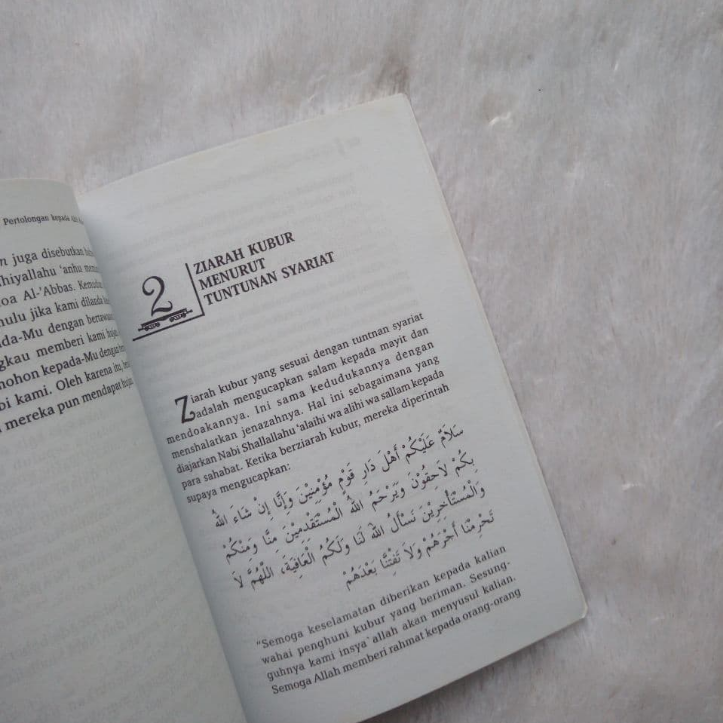 Pertolongan kepada
juga disebutkan
'anhu
oa Al-'Abbas.
ulu jika kami dilanda
ada-Mu dengan
gkau memberi kami
ohon kepada-Mu dengan
bi kami. Oleh karena itu,
mereka pun mendapat
2
ZIARAH KUBUR
MENURUT
TUNTUNAN SYARIAT
Ziarah kubur yang sesuai dengan tuntnan syariat
adalah mengucapkan salam kepada mayit dan
mendoakannya. Ini sama kedudukannya dengan
menshalatkan jenazahnya. Hal ini sebagaimana yang
diajarkan Nabi Shallallahu 'alaihi wa alihi wa sallam kepada
para sahabat. Ketika berziarah kubur, mereka diperintah
supaya mengucapkan:
سَلَامٌ عَلَيْكُمْ أَهْلَ دَارِ قَوْمٍ مُؤْمِنِيْنَ وَإِنَّا إِنْ شَاءَ اللهُ
بِكُمْ لَاحِقُوْنَ وَيَرْحَمُ اللهُ الْمُسْتَقْدِمِيْنَ مِنَّا وَمِنْكُمْ
وَالْمُسْتَأْخِرِيْنَ نَسْأَلُ اللهَ لَنَا وَلَكُمُ الْعَافِيَةَ، اللَّهُمَّ لَا
تَحْرِمْنَا أَجْرَهُمْ وَلَا تَفْتِنَّا بَعْدَهُمْ
"Semoga keselamatan diberikan kepada kalian
wahai penghuni kubur yang beriman. Sesung-
guhnya kami insya`allah akan menyusul kalian.
Semoga Allah memberi rahmat kepada orang-orang